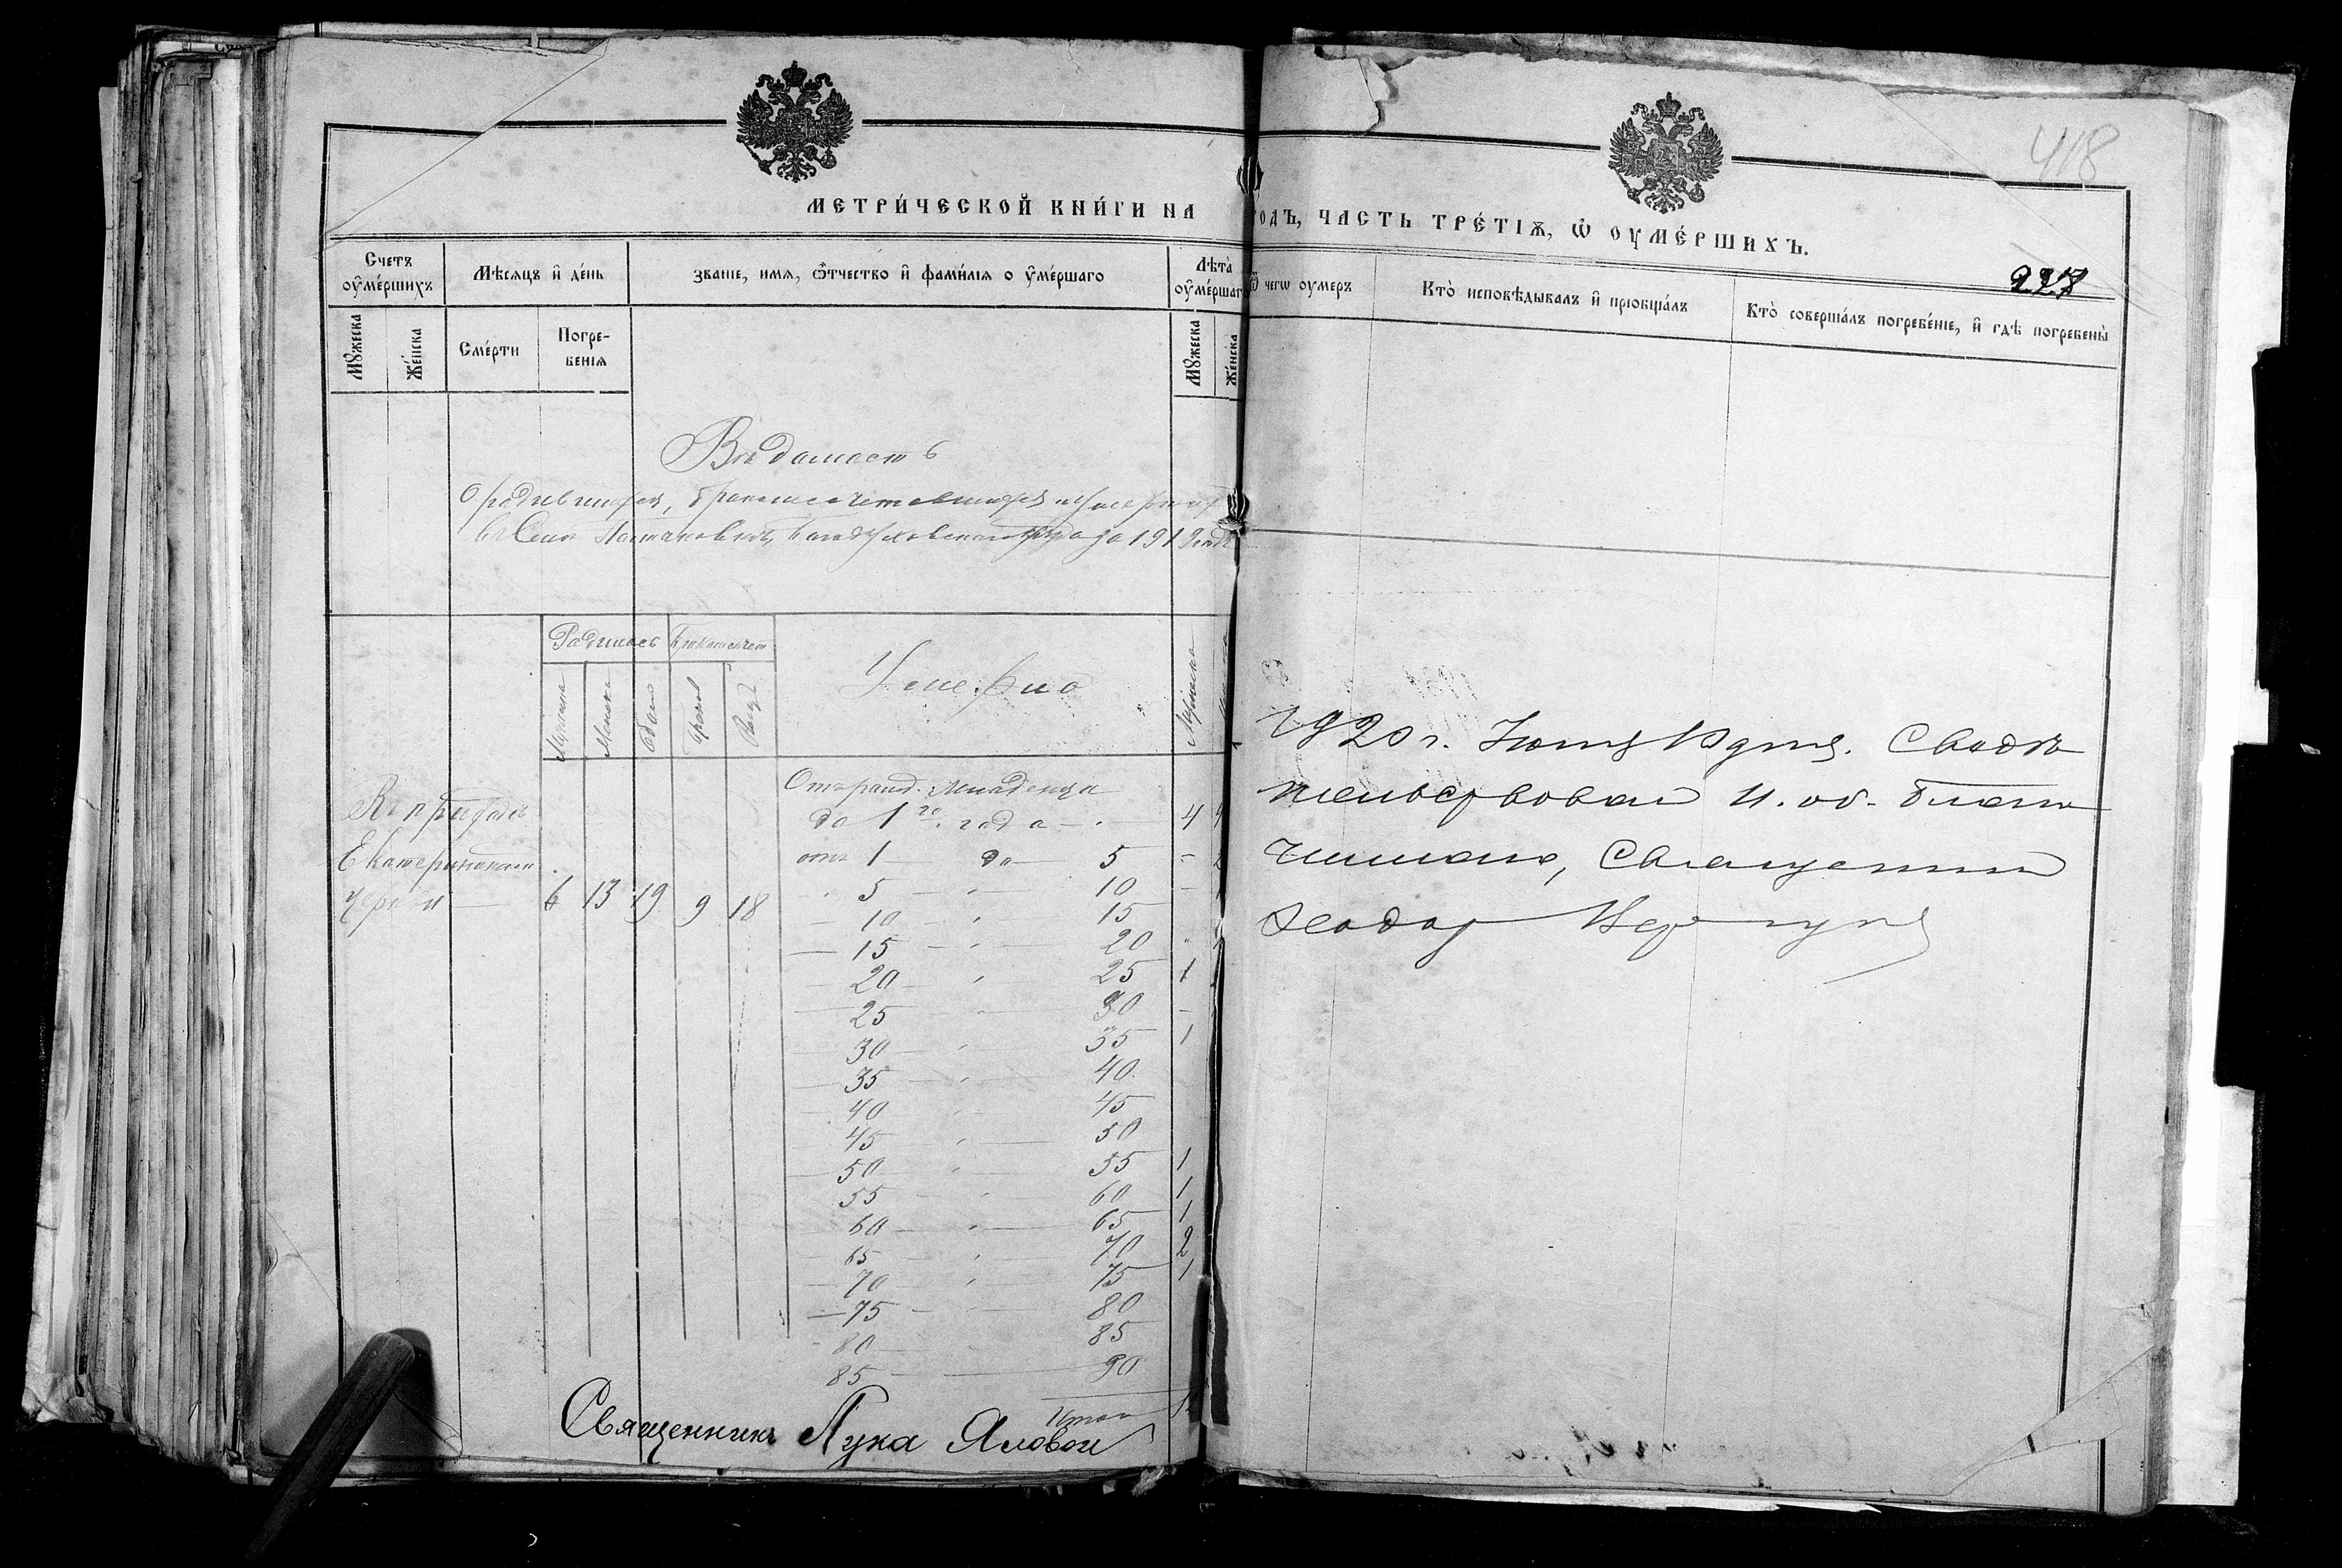 418
МЕТРИ́ЧЕСКОЙ КНИ́ГИ НА
ГОДЪ, ЧАСТЬ ТРЕ́ТІѦ, Ѡ ОУМЕ́РШИХЪ.
227
Счетъ оу҆ме́ршихъ
Мѣсяцъ и҆ де́нь
Званіе, имя, ѿтчество и҆ фами́лія оу҆ме́ршаго
Лѣта̀ оу҆ме́ршаг
Ѿ чегѡ оумеръ
Кто̀ исповѣдывалъ и҆ пріобща́лъ
Кто̀ соверша́лъ погребе́ніе, и҆ гдѣ̀ погребены̀
Мꙋжеска
Же́нска
Сме́рти
Погребенія
Мꙋжеска
Же́нска
Вѣдомость
О родившихся, бракосочетавшихся и умерших
въ Селѣ Богодуховскаго уѣзда за 1919 годъ
Родилось
Бракосочет.
Умерло
Мужска
Женска
Обоего
Браков
Мужска
Въ приходѣ
Екатерининской
церкви 6 13 19 9 18
От рожд. младенца
до 1го года 4
отъ 1 до 5 -
5 10 -
10 15
15 20
20 25 1
25 30 -
30 35 1
35 40
40 45
45 50
50 55 1
55 60 1
60 65 1
65 70 2
70 75 1
75 80
80 85
85 90
Итого 12
Священникъ Лука Яловой
1920 г. дня. Сводъ
свидѣтельствовал И. об. Благо
чиннаго, Священник
Ѳеодор